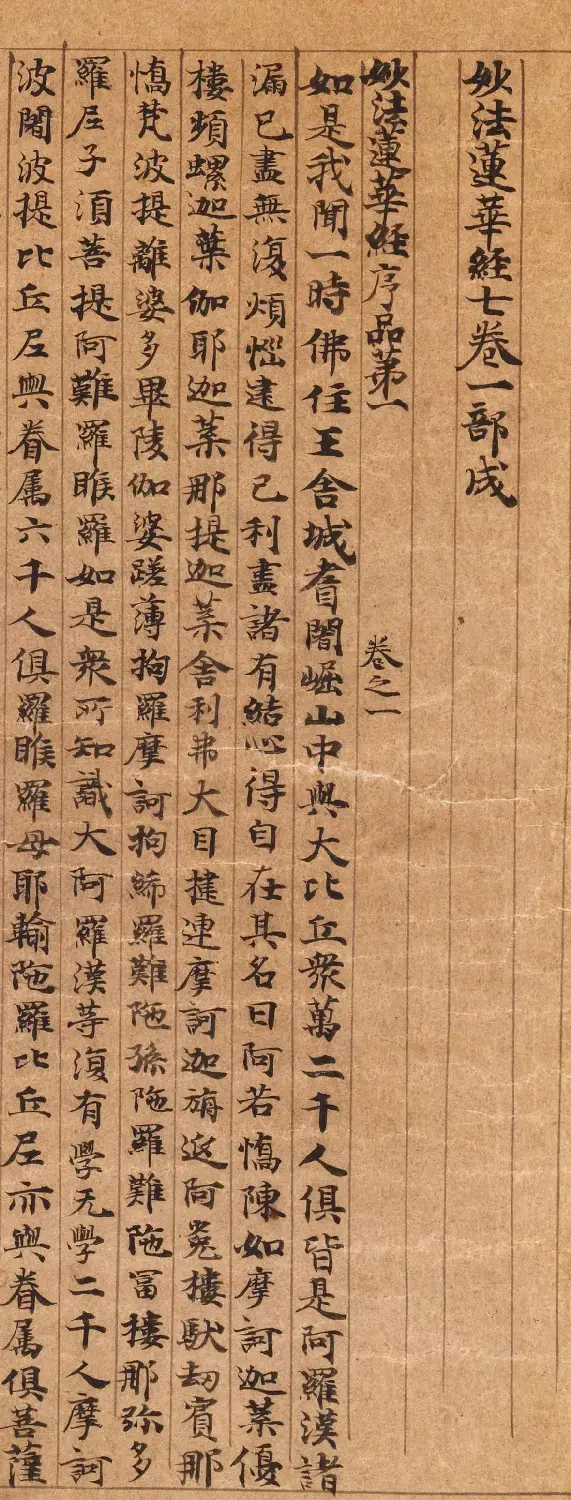 妙法蓮華經七卷一部成
妙法蓮華經序品第一 卷之一
如是我聞一時佛住王舍城耆闍崛山中與大比丘衆萬二千人俱皆是阿羅漢諸
漏已盡無復煩惱逮得己利盡諸有結心得自在其名曰阿若憍陳如摩訶迦葉優
樓頻螺迦葉伽耶迦葉那提迦葉舍利弗大目揵連摩訶迦旃延阿㝹樓馱劫賓那
憍梵波提離婆多畢陵伽婆蹉薄拘羅摩訶拘絺羅難陁孫陁羅難陁冨樓那弥多
羅尼子須菩提阿難羅睺羅如是衆所知識大阿羅漢等復有學无學二千人摩訶
波闍波提比丘尼與眷属六千人俱羅睺羅母耶輸陁羅比丘尼亦與眷属俱菩薩